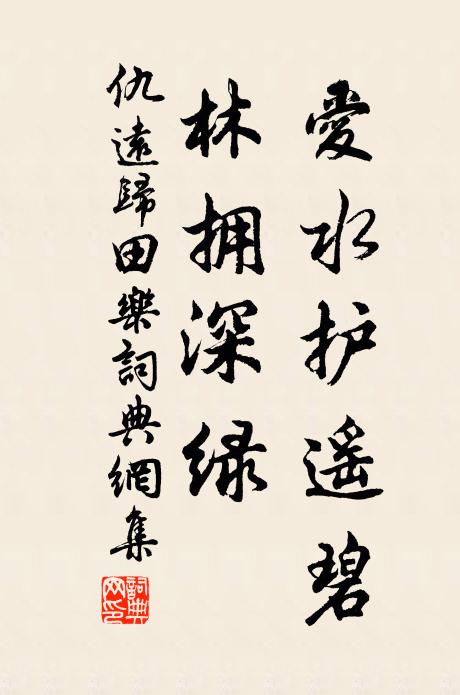 愛水护遥碧
林拥深绿
仇遠歸田樂詞典網集
詞典网印